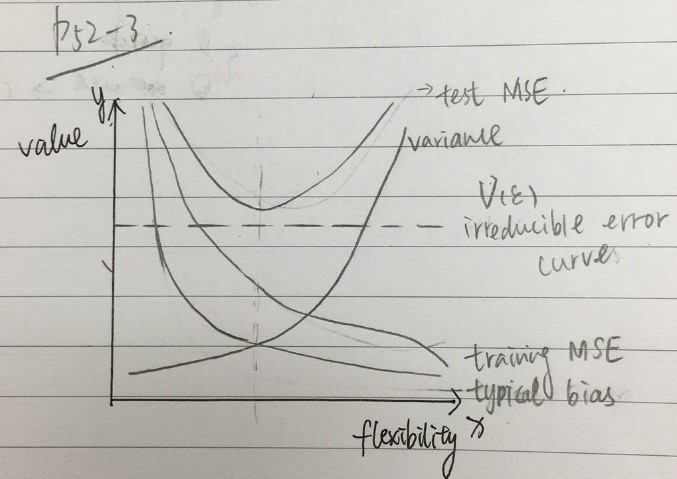 P52-3
y
value
test MSE.
variance
V(ε)
irreducible error
curves
training MSE
typical bias
flexibility x